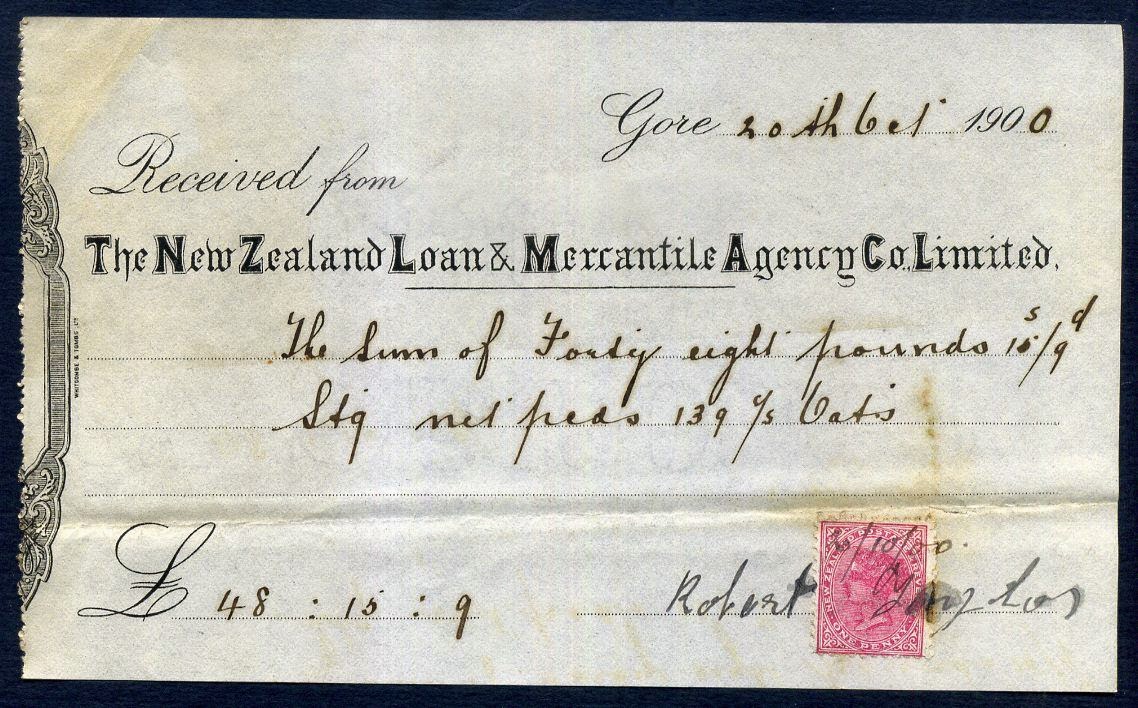 Gore 20th Oct 1900
Received from
The New Zealand Loan & Mercantile Agency Co. Limited.
The Sum of Forty eight pounds 15s/9d
Stg net pcds 139 c/s Oats
WHITCOMBE & TOMBS LTD
£ 48 : 15 : 9
20/10/00.
Robert
NEW ZEALAND POSTAGE & REVENUE
ONE PENNY